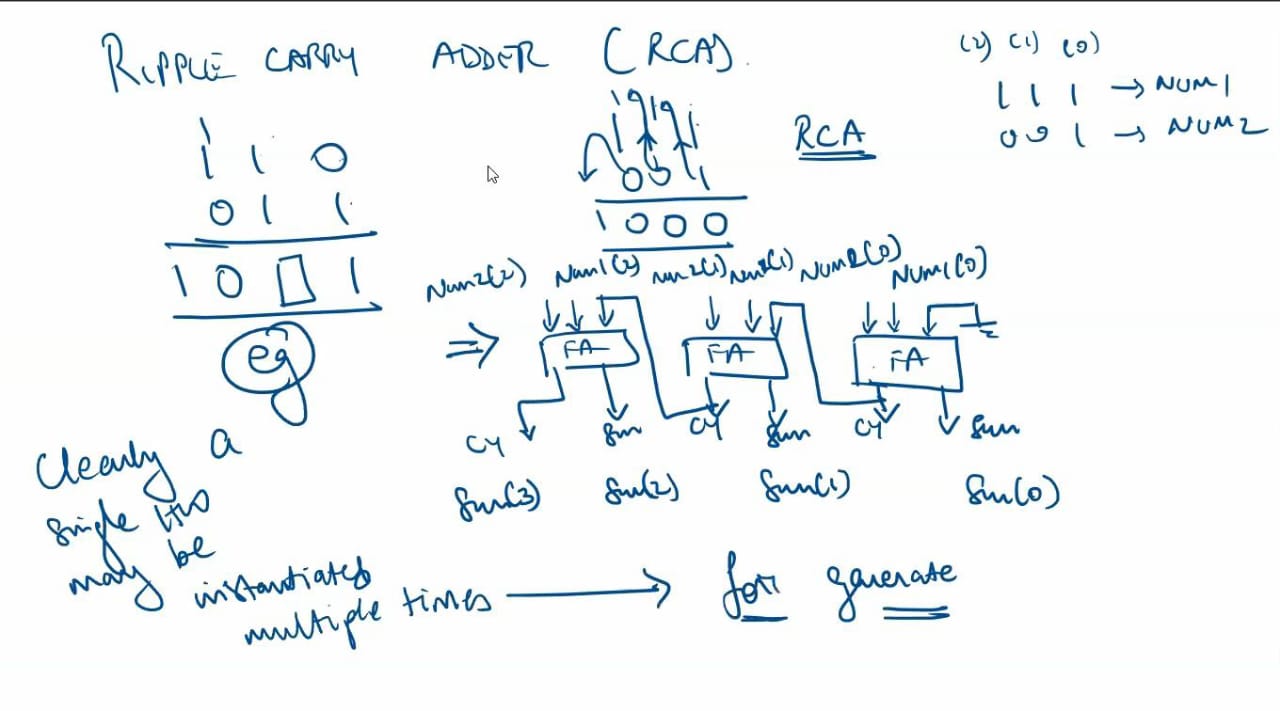 RIPPLE CARRY ADDER (RCA)
(2) (1) (0)
1 1 1 → NUM1
0 0 1 → NUM2
RCA
1
1 1 0
0 1 1
1 0 1
1 1 1
1 1 1
0 0 1
1 0 0 0
eg
Num2(2) Num1(2) Num2(1) Num1(1) Num2(0) Num1(0)
⇒ FA FA FA
CY Sum CY Sum CY Sum
Sum(3) Sum(2) Sum(1) Sum(0)
Clearly a
single HW
may be
instantiated
multiple times → for generate